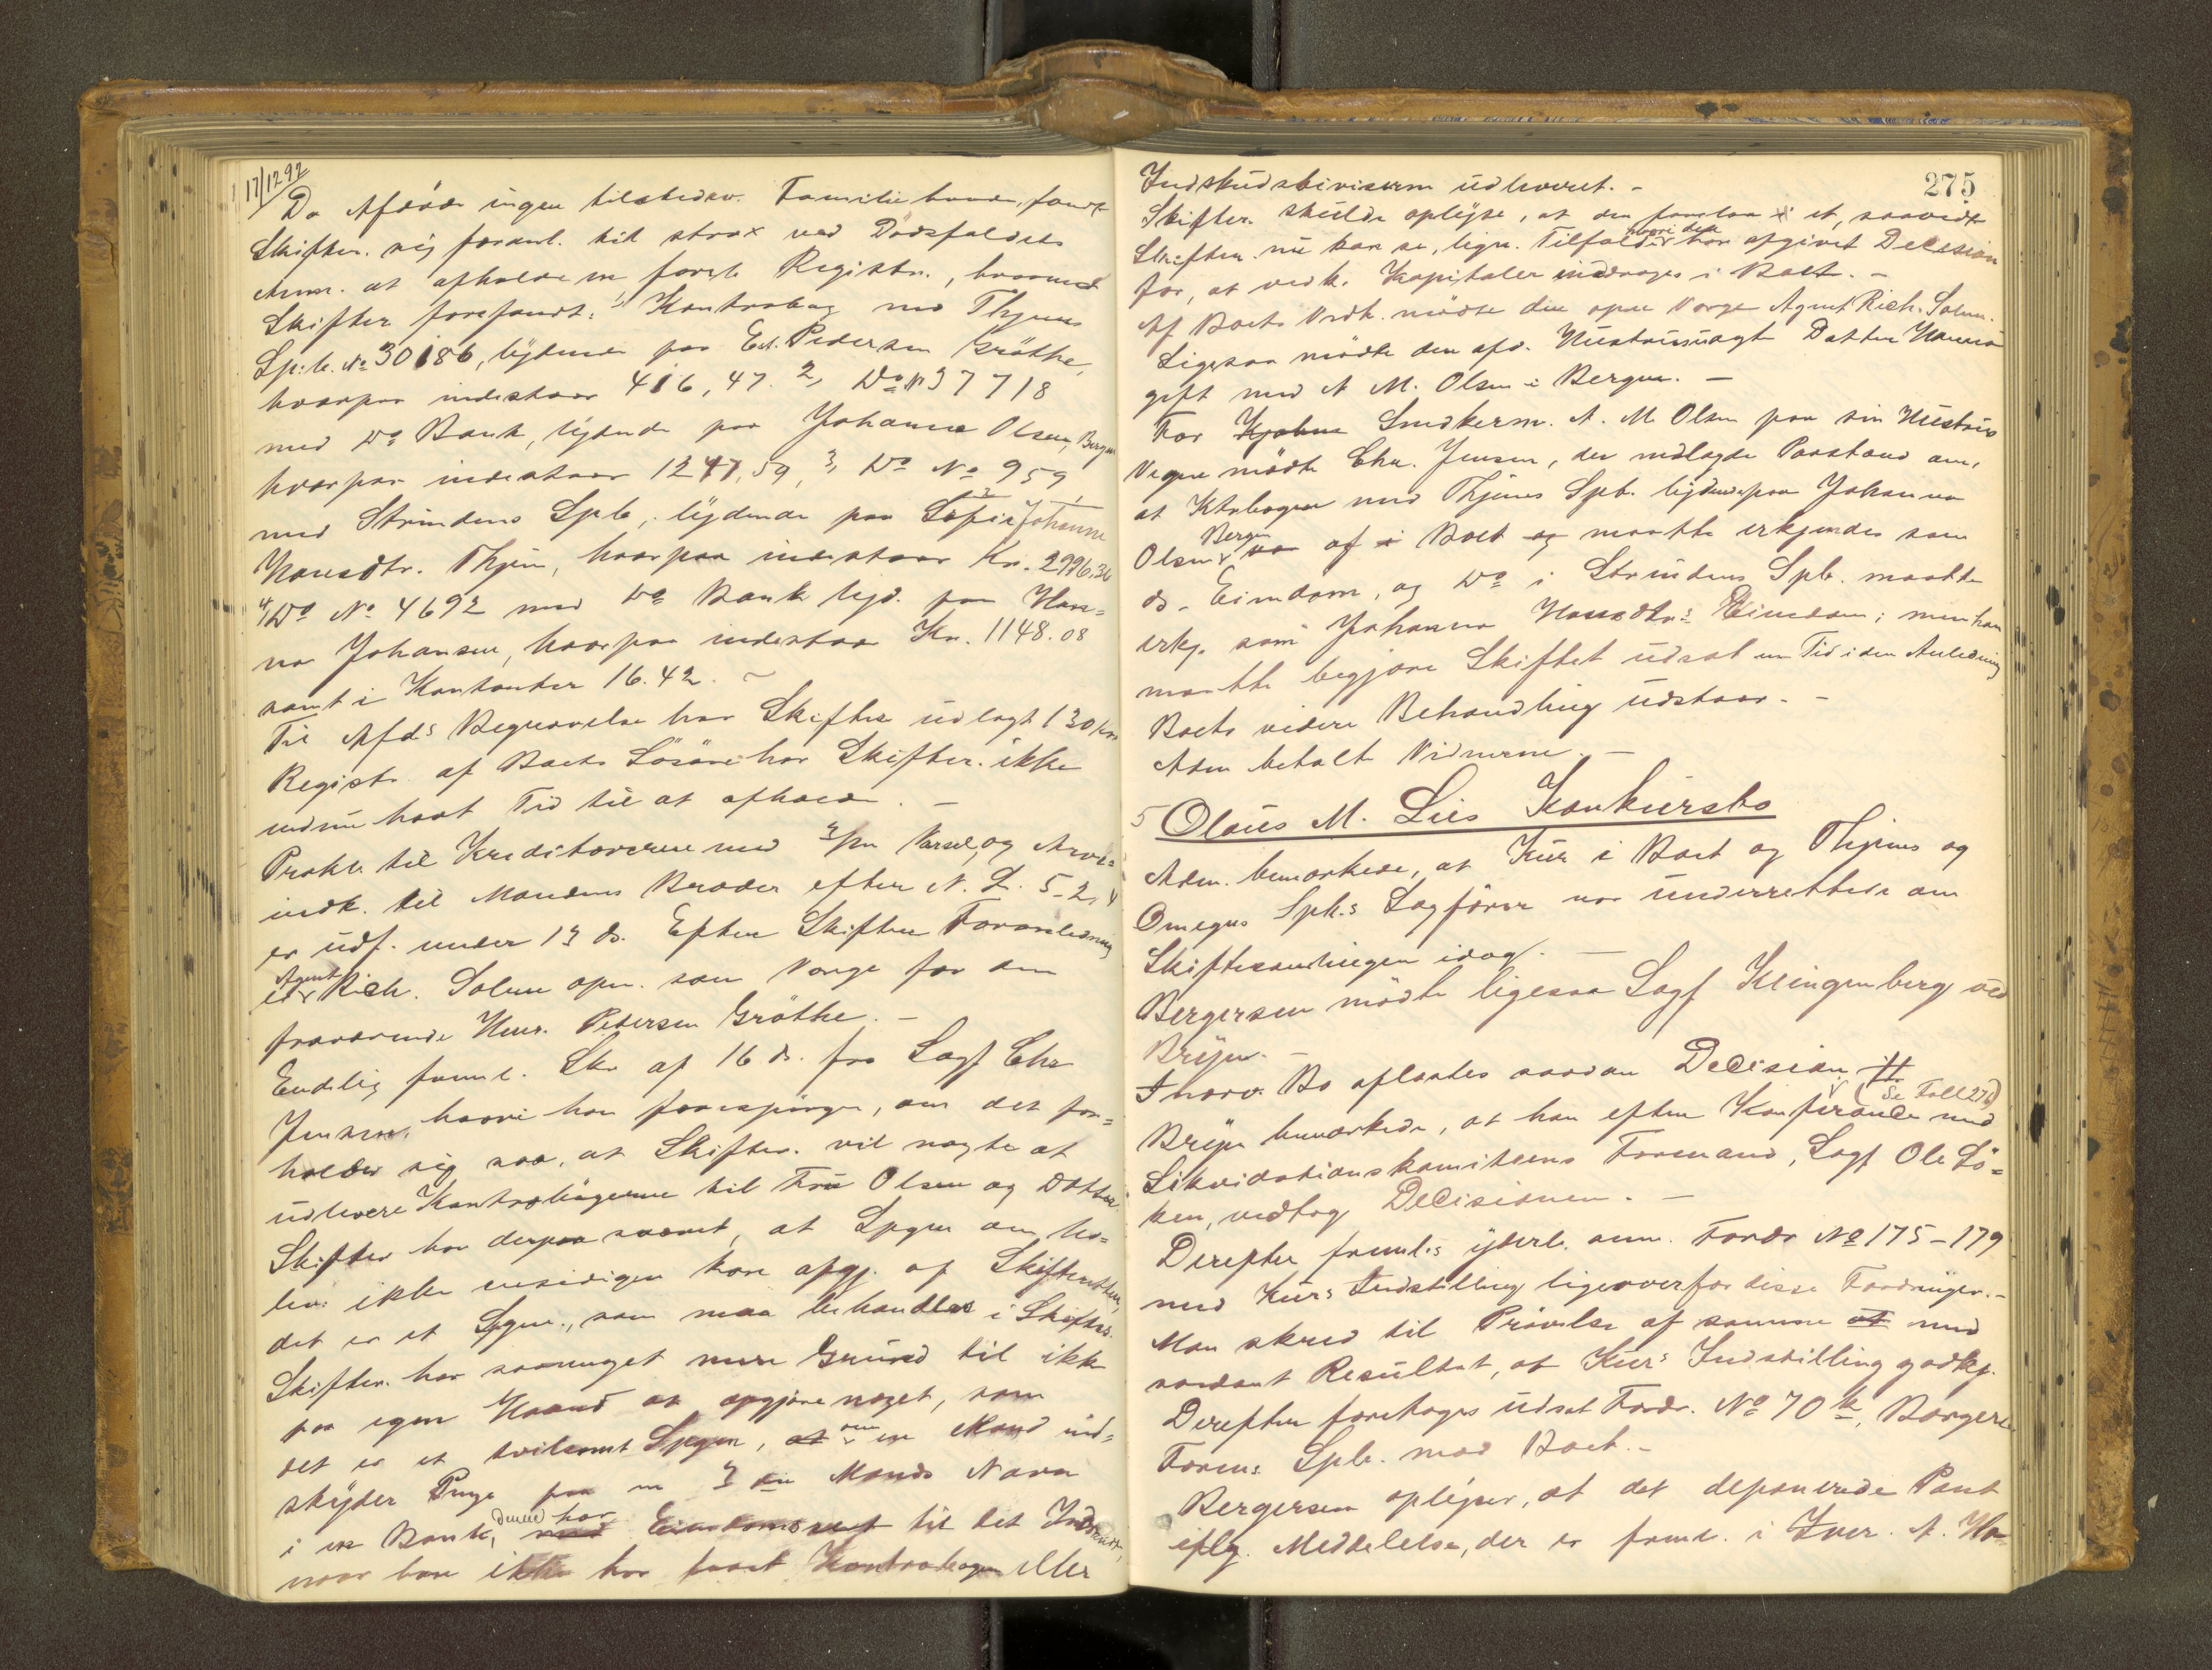 17/12 92
Da Afdøde ingen tilstedev. Familie havde, fandt
Skifter. sig foranl. til strax ved Dödsfaldets
Anm. at afholde en forel. Registr., hvorved
Skifter forefandt: 1, Kontrabog med Thjems
Sp.b. No 30186, lydende paa Ed. Pedersen Gröthe,
hvorpaa indestaar 416,47. 2, Do No 37718
med Do Bank, lydende paa Johanna Olsen, Bergen
hvorpaa indestaar 1247,59, 3, Do No 959,
med Strindens Spb., lydende paa Sofie Johanne
Hansdtr. Thjem, hvorpaa indestaar Kr. 2996,36
4, Do No 4692 med Do Bank lyd. paa Han=
na Johansen, hvorpaa indestaar Kr. 1148.08
samt i Kontanter 16.42. –
Til Afd.s Begravelse har Skifter udlagt 130 kr.
Registr. af Boets Lösöre har Skifter. ikke
endnu havt Tid til at afholde. –
Prokl. til Kreditorerne med 3/m Varsel, og Arve=
indk. til Mandens Broder efter N. L. 5-2,
er udf. under 13 ds. Efter Skifter Foranledning
er Agent Rich. Solem opn. som Værge for den
fraværende Henr. Pedersen Gröthe. –
Endelig freml. Skr af 16 ds. fra Sagf Chr
Jensen, hvori han forespörger, om det for=
holder sig saa, at Skifter. vil nægte at
udlevere Kontrabögerne til Fru Olsen og Datter.
Skifter har derpaa svaret, at Spgm om
ikke ensidigen kan afgj. af Skifteretten,
det er et Spgm., som maa behandles i Skifter.
Skifter. har saameget mere Grund til ikke
paa egen Haand at afgjöre noget, som
det er et tvilsomt Spgm, at om en Mand ind=
skyder Penge paa en 3die Mands Navn
i en Bank, denne har med Eiendomsret til det Indskudte,
naar han ikke har faaet Kontrabogen eller
275
Indskudsbeviserne udleveret. –
Skifter. skulde oplyse, at der forelaa et, saavidt
Skifter. nu kan se, lign. Tilfælde, hvori den har afgivet Decision
for, at vedk. Kapitaler inddrages i Boet. –
Af Boets Vedk. mödte den opn Værge Agent Rich. Solem.
Ligesaa mödte den afd. Hustrus uægt Datter Hanna
gift med A M. Olsen i Bergen. –
For Snedkerm. A. M. Olsen paa sin Hustrus
Vegne mödte Chr. Jensen, der nedlagde Paastand om,
at Ktrabogen med Thjems Spb. lydende paa Johanna
Olsen, Bergen var af i Boet og maatte erkjendes som
ds. Eiendom, og Do i Strindens Spb. maatte
erkj. som Johanna Hansdtr.s Eiendom; men han
maatte begjære Skiftet udsat en Tid i den Anledning
Boets videre Behandling udstaar. –
Adm betalt Vidnerne. –
5 Olaus M. Lies Konkursbo
Adm. bemærkede, at Kur i Boet og Thjems og
Omegns Spb.s Sagförer var underrettede om
Skiftesamlingen idag. –
Bergersen mödte ligesaa Sagf Klingenberg ved
Bryn. –
I nærv. Bo aflagtes saadan Decision: # (Se Foll 276)
Bryn bemærkede, at han efter Konferance med
Likvidationskomiteens Formand, Sagf Ole Lö=
ken, vedtog Decisionen. –
Derefter freml.s yderl. anm. Fordr No 175–179
med Kur.s Indstilling ligeoverfor disse Fordringer. –
Man skred til Prövelse af samme at med
saadant Resultat, at Kur.s Indstilling godkj.
Derefter foretoges udsat Fordr. No 70 k, Borgerl
Foren.s Spb. mod Boet. –
Bergersen oplyser, at det deponerede Pant
iflg. Meddelelse, der er freml. i Iver. A. Ha=